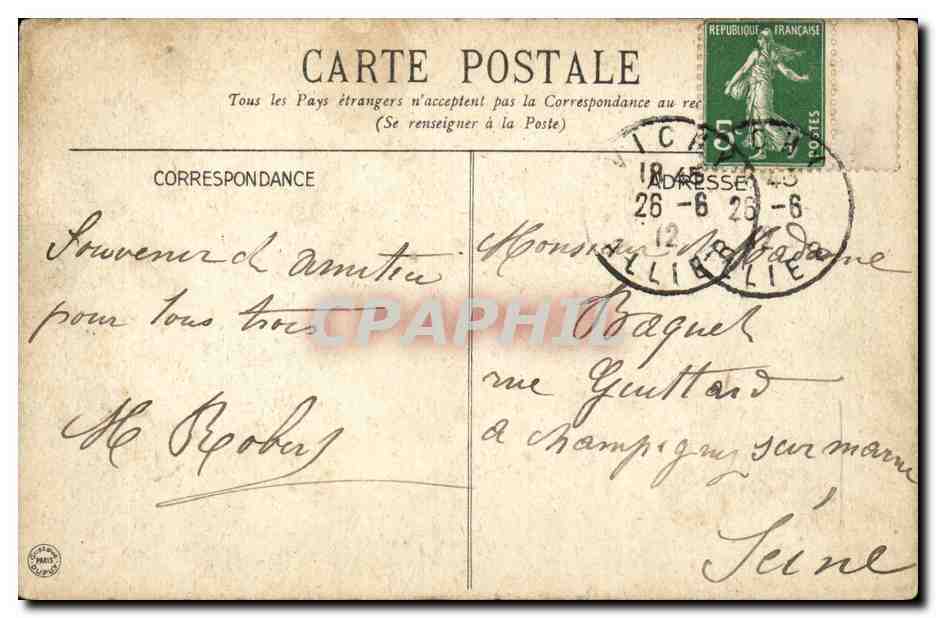 CARTE POSTALE
Tous les Pays étrangers n'acceptent pas la Correspondance au rec
(Se renseigner à la Poste)
REPUBLIQUE FRANÇAISE
5
POSTES
VICHY
18 45
26 -6
12
ALLIER
VICHY
45
26 -6
ALLIER
CORRESPONDANCE
Souvenir d'amitié
pour tous trois
M Robert
ADRESSE
Monsieur & Madame
Baquet
rue Guittard
a champigny sur marne
Seine
CPAPHIL
PARIS